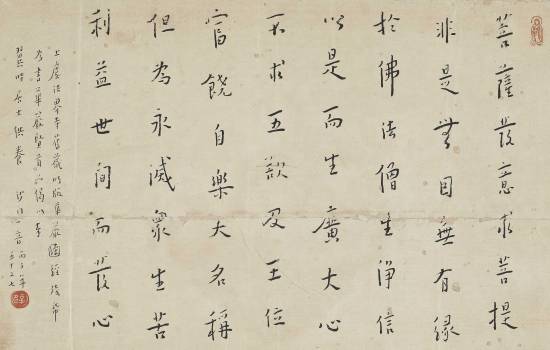 菩薩發意求菩提
非是無因無有緣
於佛法僧生淨信
以是而生廣大心
不求五欲及王位
富饒自樂大名稱
但為永滅眾生苦
利益世間而發心
上虞法界寺舊藏
為書華嚴賢首品偈以奉
居士供養 沙門一音